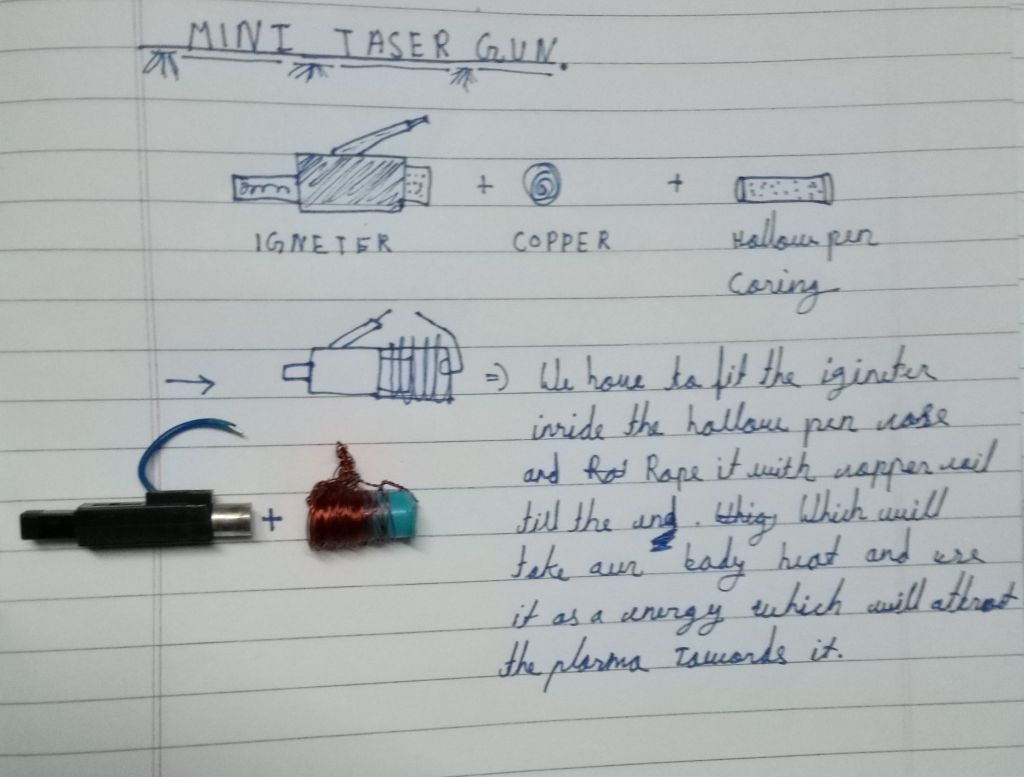 MINI TASER GUN.
IGNETER + COPPER + Hollow pen
Caring
→ => We have to fit the igineter
inride the hollow pen case
and Rope it with copper coil
till the end. Which will
+ take our body heat and use
it as a energy which will attract
the plasma Towards it.